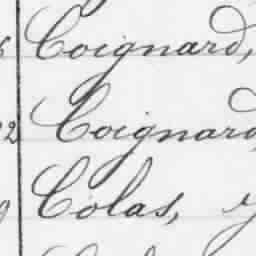 Coignard,
2 Coignard,
Colas,